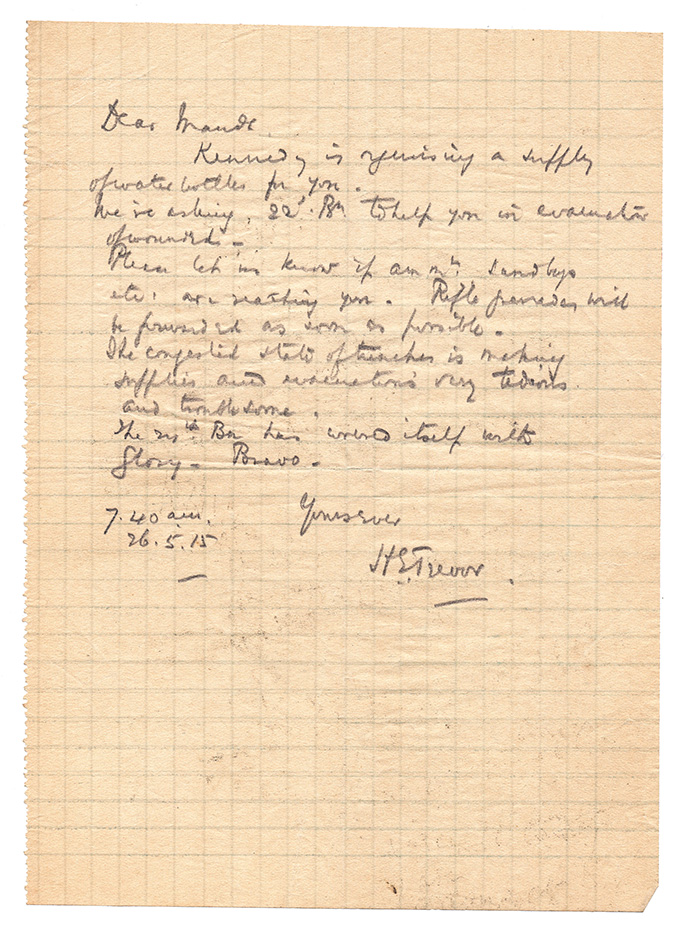 Dear Maude.
Kennedy is organising a supply
of water bottles for you.
We're asking 22d. Bn to help you in evacuation
of wounded.
Please let us know if amm. Sandbags
etc. are reaching you. Rifle grenades will
be forwarded as soon as possible.
The congested state of trenches is making
supplies and evacuations very tedious
and troublesome.
The Bn has covered itself with
Glory - Bravo.
7.40 am. Yours Ever
26.5.15
H E Trevor.